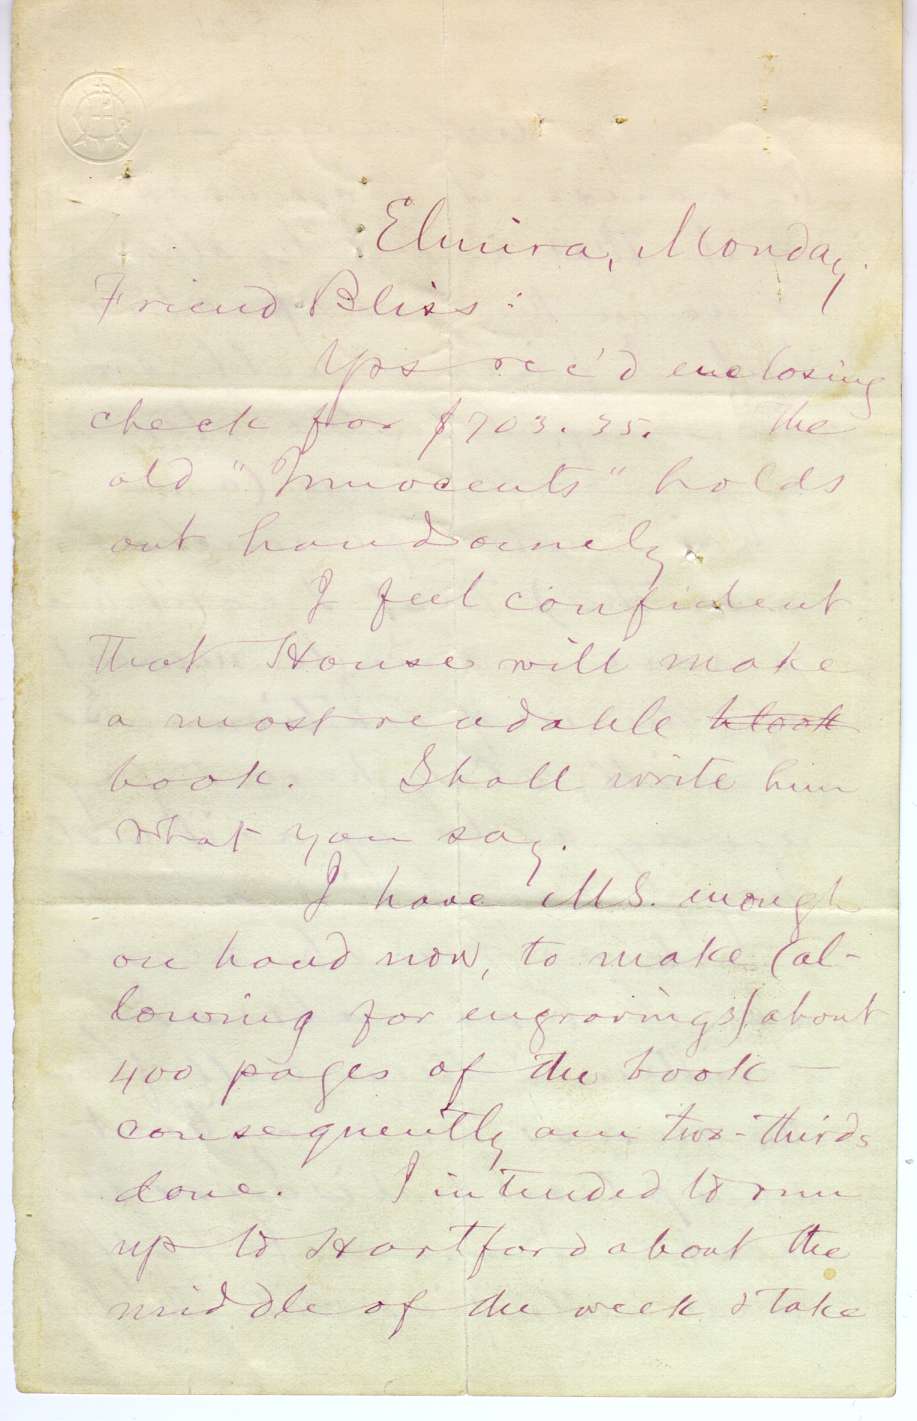 Elmira, Monday.
Friend Bliss:
Yrs rec'd enclosing
check for $703.35. The
old "Innocents" holds
out handsomely.
I feel confident
that House will make
a most readable
book. Shall write him
what you say.
I have MS. enough
on hand now, to make (al-
lowing for engravings) about
400 pages of the book —
consequently am two-thirds
done. I intended to run
up to Hartford about the
middle of the week & take